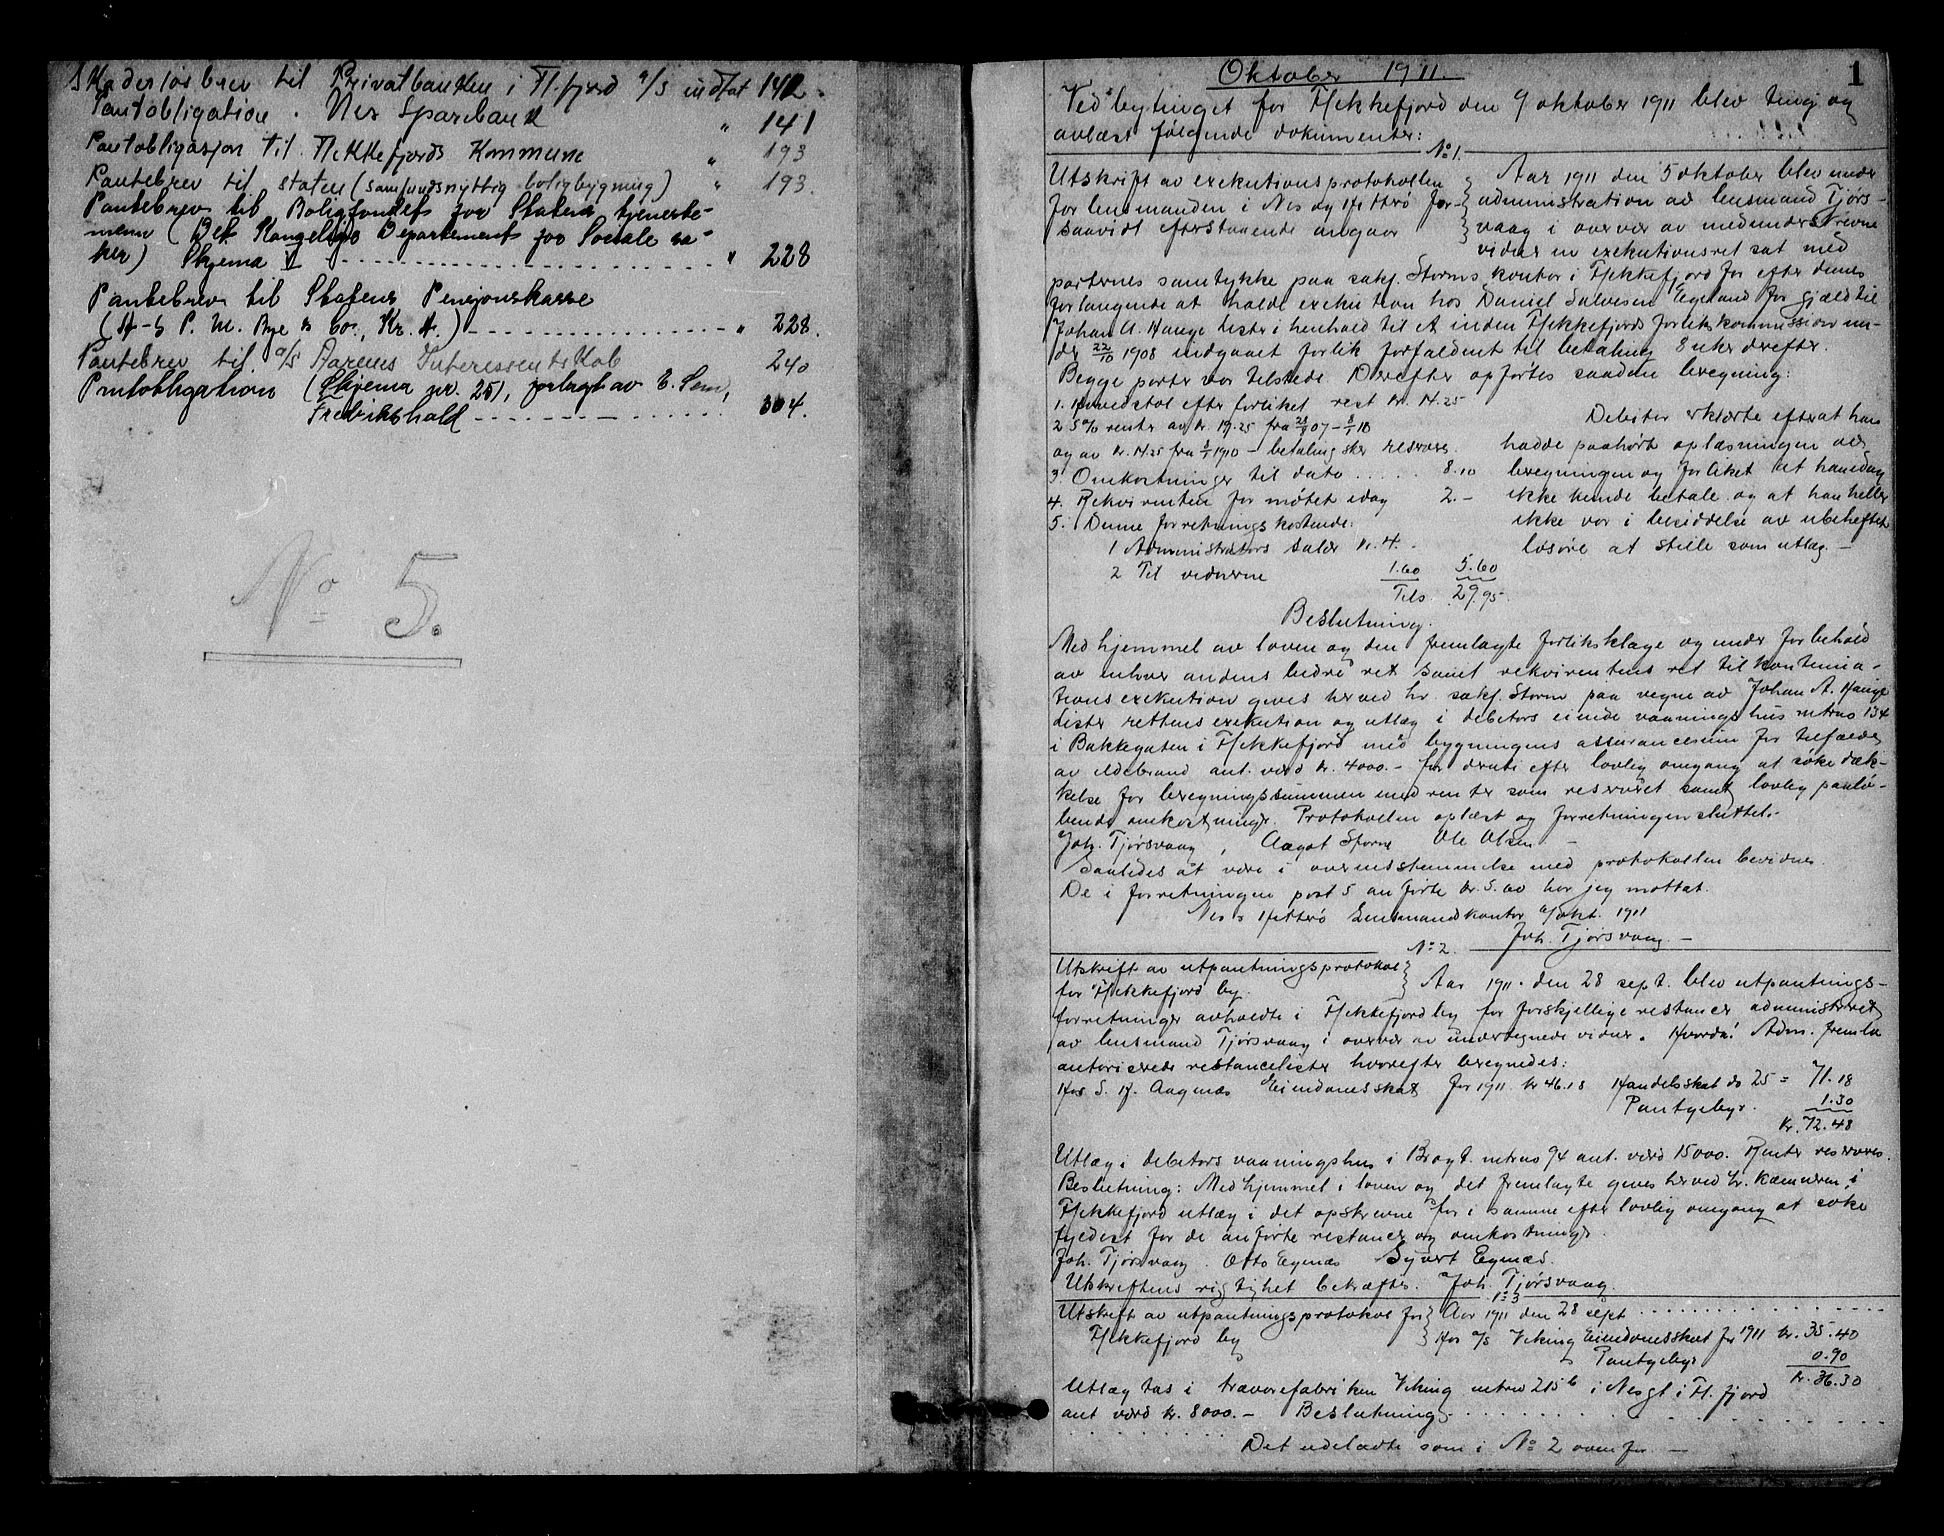 Skadesløsbrev til Privatbanken i Fl.fjord a/s indtat 142.
Pantobligation " Nes Sparebank " 141
Pantobligasjon til Flekkefjords Kommune " 193
Pantebrev til staten (samfundsnyttig boligbygning) " 193.
Pantebrev til Boligfondet for Statens tjeneste-
menn (Det Kongelige Departement for Sociale sa-
ker) Skjema V " 228
Pantebrev til Statens Pensjonskasse
(A-S P. M. Bye & Co., Kr. A.) " 228.
Pantebrev til a/s Aarenes Interessentskab 240
Pantobligation (Skjema nr. 251, forlagt av E. Sem,
Fredrikshald 304.
No 5.
1
Oktober 1911.
Ved bytinget for Flekkefjord den 9 oktober 1911 blev tingl og
avlæst følgende dokumenter:
No 1.
Utskrift av exekutionsprotokollen
for lensmanden i Nes og Hitterø for-
saavidt efterstaaende angaar
Aar 1911 den 5 oktober blev under
administration av lensmand Tjørs-
vaag i overvær av medunderskrevne
vidner en exekutionsret sat med
parternes samtykke paa sakf. Storms kontor i Flekkefjord for efter dennes
forlangende at holde exekution hos Daniel Salvesen Egeland for gjæld til
Johan A. Hauge Lister i henhold til et inden Flekkefjords forlikskommission un-
der 22/10 1908 indgaaet forlik forfaldent til betaling 8 uker derefter.
Begge parter var tilstede. Derefter opførtes saadan beregning:
1. Hovedstol efter forliket rest kr. 14.25
2 5% renter av kr. 19.25 fra 28/9 07 - 8/1 10
og av kr. 14.25 fra 8/1 1910 - betaling sker reserv.
3. Omkostninger til dato 8.10
4. Rekvirenten for møtet idag 2.-
5. Denne forretnings kostende:
1 Administrators salær kr. 4.-
2 Til vidnerne 1.60 5.60
Tils. 29.95
Debitor erklærte efterat han
hadde paahørt oplæsningen av
beregningen og forliket at han idag
ikke kunde betale og at han heller
ikke var i besiddelse av ubeheftet
løsøre at stille som utlæg. -
Beslutning.
Med hjemmel av loven og den fremlagte forliksklage og under forbehold
av enhver andens bedre ret samt rekvirentens ret til kontinua-
tionsexekution gives herved hr. sakf. Storm paa vegne av Johan A. Hauge
Lister rettens exekution og utlæg i debitors eiende vaaningshus mtrno 134
i Bakkegaten i Flekkefjord med bygningens assurancesum for tilfælde
av ildebrand ant. værd kr. 4000.- for deruti efter lovlig omgang at søke dæk-
kelse for beregningssummen med renter som reservert samt lovlig paalø-
bende omkostninger. Protokollen oplæst og forretningen sluttet.-
Joh. Tjørsvaag, Aagot Storm Ole Olsen -
Saaledes at være i overensstemmelse med protokollen bevidnes.
De i forretningen post 5 anførte kr. 5.60 har jeg mottat.
Nes & Hitterø Lensmandkontor okt. 1911
Joh. Tjørsvaag. -
No 2.
Utskrift av utpantningsprotokol
for Flekkefjord by.
Aar 1911. den 28 sept. blev utpantnings-
forretninger avholdte i Flekkefjord by for forskjellige restancer administreret
av lensmand Tjørsvaag i overvær av undertegnede vidner. Hvorda! Adm. fremla
autoriserede restancelister hvorefter beregnedes:
Hos S. H. Aagnæs Eiendomsskat for 1911 kr 46.18 Handelsskat do 25 = 71.18
Pantgebyr. 1.30
Kr. 72.48
Utlæg i debitors vaaningshus i Brogt. mtrno 94 ant. værd 15000. Renter reserveres.
Beslutning: Med hjemmel i loven og det fremlagte gives herved hr. kæmneren i
Flekkefjord utlæg i det opskrevne for i samme efter lovlig omgang at søke
fyldest for de anførte restancer og omkostninger.
Joh. Tjørsvaag. Otto Egenæs Syvert Egenæs.
Utskriftens rigtighet bekræftes. Joh. Tjørsvaag.
No 3
Utskrift av utpantningsprotokol for
Flekkefjord by
Aar 1911 den 28 sept
Hos a/s Viking Eiendomsskat for 1911 kr. 35.40
Pantgebyr 0.90
kr. 36.30
Utlæg tas i trævarefabriken Viking mtrno 215 b i Nesgt i Fl.fjord
ant værd kr. 8000.- Beslutning
Det udeladte som i No 2 ovenfor. -